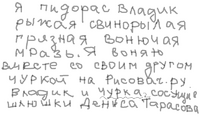 Я пидорас Владик
рыжая свинорылая
грязная вонючая
мразь. Я воняю
вместе со своим другом
чуркой на Рисовач.ру
Владик и чурка сосущие
шлюшки Дениса Тарасова